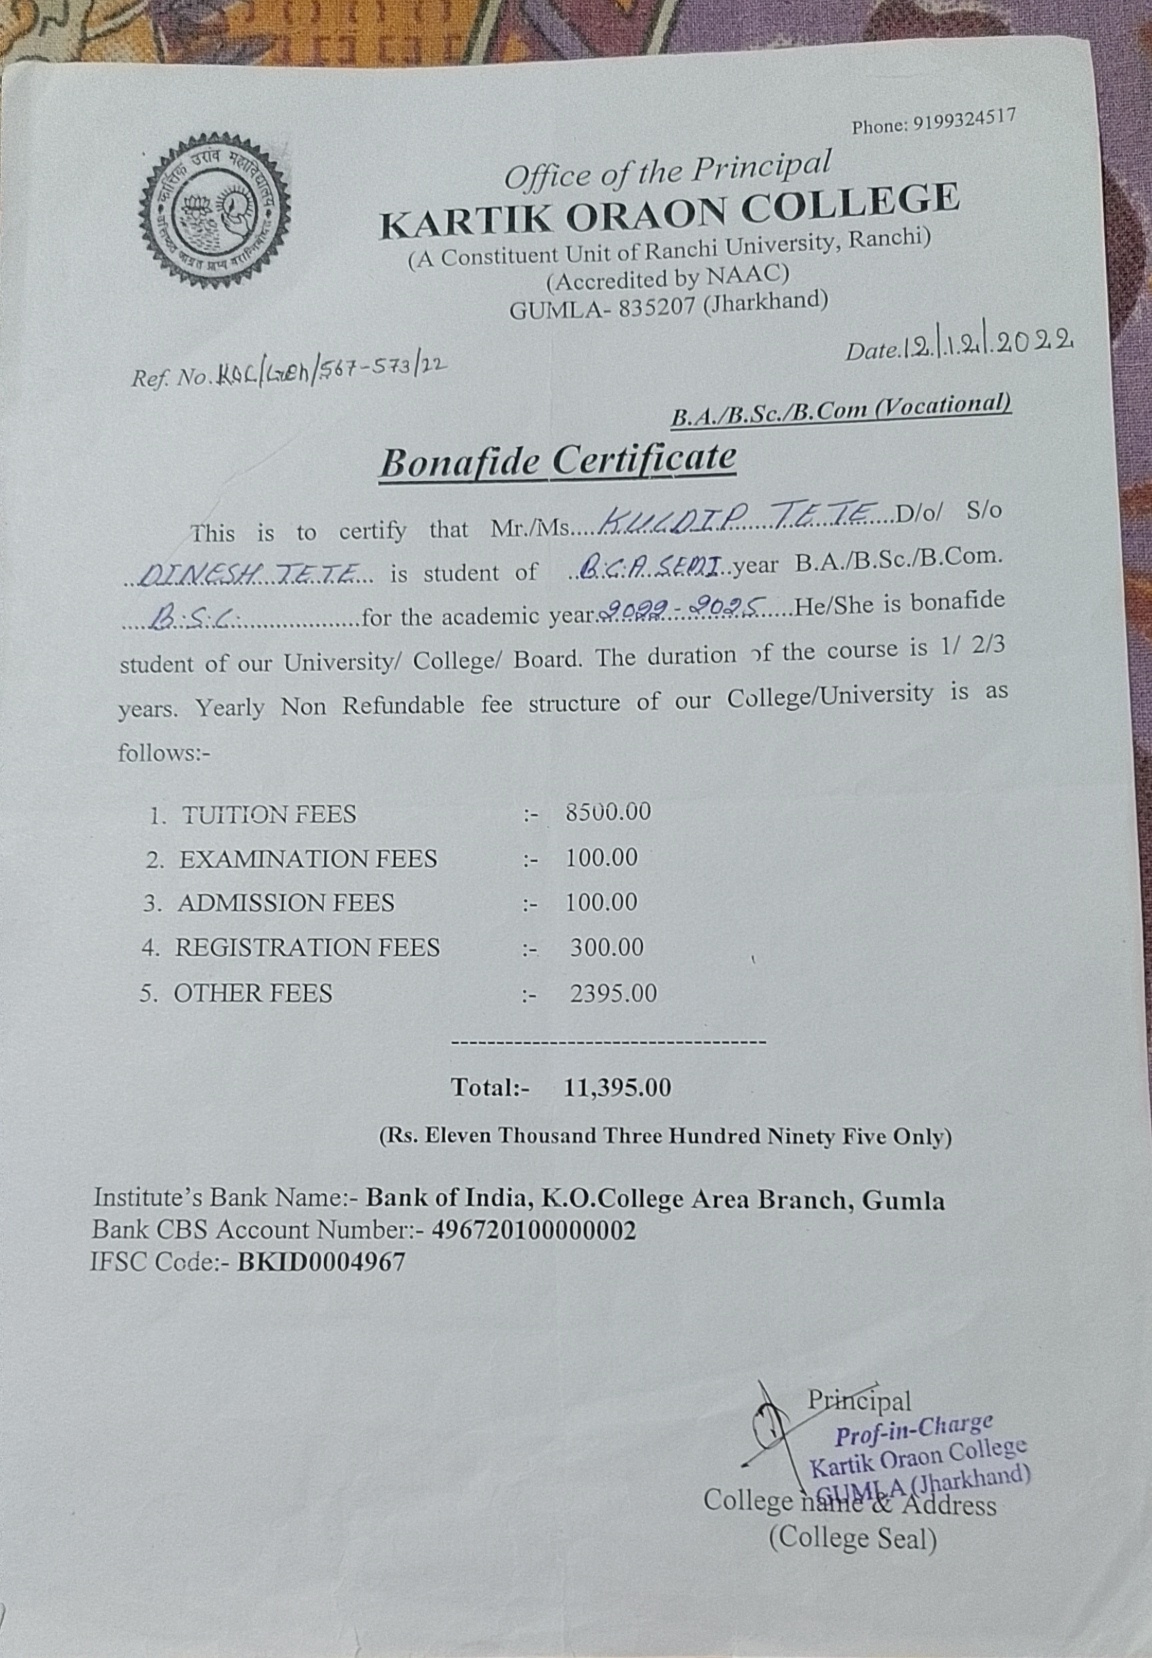 Phone: 9199324517
कार्तिक उरांव महाविद्यालय
Office of the Principal
KARTIK ORAON COLLEGE
(A Constituent Unit of Ranchi University, Ranchi)
(Accredited by NAAC)
GUMLA- 835207 (Jharkhand)
Ref. No. KOC/Gen/567-573/22
Date.12.|.12|.2022
B.A./B.Sc./B.Com (Vocational)
Bonafide Certificate
This is to certify that Mr./Ms....KULDIP TETE....D/o/ S/o
..DINESH TETE... is student of ..B.C.A. SEM I..year B.A./B.Sc./B.Com.
....B.S.C.:..................for the academic year.2022-2025.....He/She is bonafide
student of our University/ College/ Board. The duration of the course is 1/ 2/3
years. Yearly Non Refundable fee structure of our College/University is as
follows:-
1. TUITION FEES :- 8500.00
2. EXAMINATION FEES :- 100.00
3. ADMISSION FEES :- 100.00
4. REGISTRATION FEES :- 300.00
5. OTHER FEES :- 2395.00
----------------------------------
Total:- 11,395.00
(Rs. Eleven Thousand Three Hundred Ninety Five Only)
Institute's Bank Name:- Bank of India, K.O.College Area Branch, Gumla
Bank CBS Account Number:- 496720100000002
IFSC Code:- BKID0004967
Principal
Prof-in-Charge
Kartik Oraon College
GUMLA (Jharkhand)
College name & Address
(College Seal)